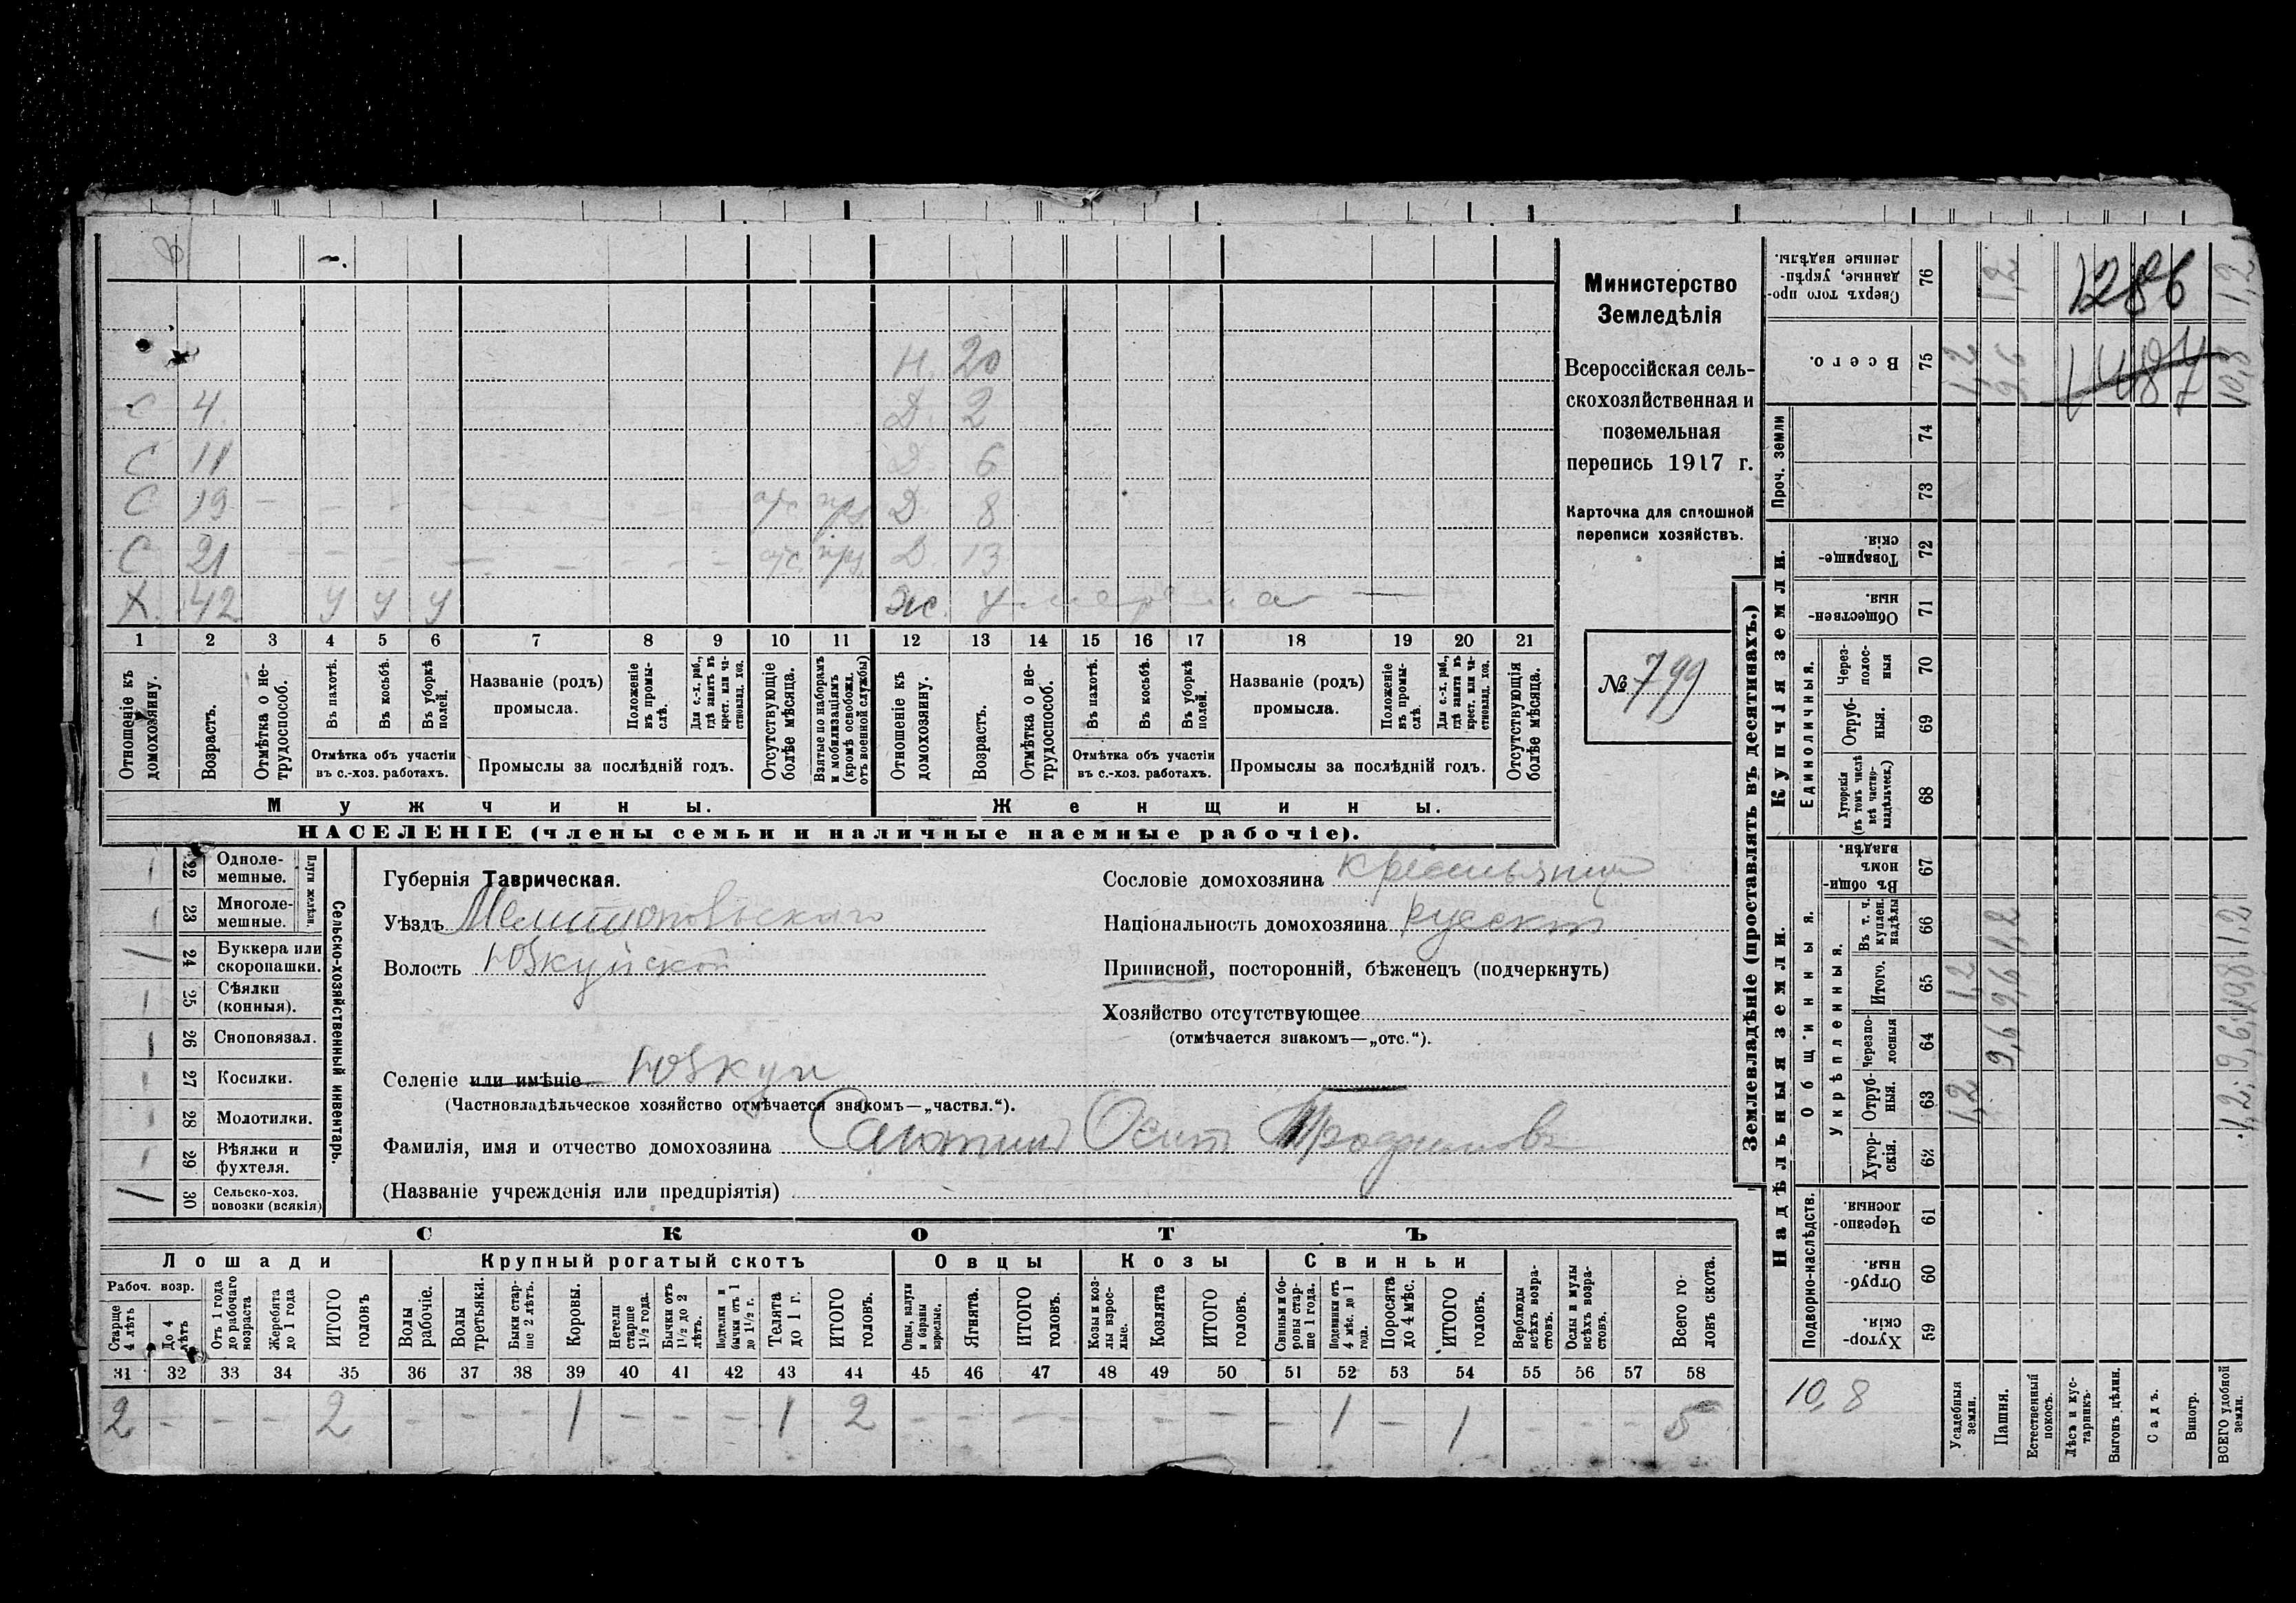 Н. 20
С 4 Д. 2
С 11 Д. 6
С 19 — отс. Д. 8
С 21 отс. Д. 13
Х. 42 У У У Ж. умерла
1 2 3 4 5 6 7 8 9 10 11 12 13 14 15 16 17 18 19 20 21
Отношеніе къ домохозяину.
Возрастъ.
Отмѣтка о не-
трудоспособ.
Въ пахотѣ.
Въ косьбѣ.
Въ уборкѣ полей.
Отмѣтка объ участіи
въ с.-хоз. работахъ.
Названіе (родъ)
промысла.
Положеніе въ промы-
слѣ.
Для с.-х. раб., гдѣ занятъ въ крест. или ча-
стновлад. хоз.
Промыслы за послѣдній годъ.
Отсутствующіе болѣе мѣсяца.
Взятые по наборамъ и мобилизаціямъ (кромѣ освобожд. отъ военной службы)
Отношеніе къ домохозяину.
Возрастъ.
Отмѣтка о не-
трудоспособ.
Въ пахотѣ.
Въ косьбѣ.
Въ уборкѣ полей.
Отмѣтка объ участіи
въ с.-хоз. работахъ.
Названіе (родъ)
промысла.
Положеніе въ промы-
слѣ.
Для с.-х. раб., гдѣ занята въ крест. или ча-
стновлад. хоз.
Промыслы за послѣдній годъ.
Отсутствующія болѣе мѣсяца.
Мужчины. Женщины.
НАСЕЛЕНІЕ (члены семьи и наличные наемные рабочіе).
Министерство
Земледѣлія
Всероссійская сель-
скохозяйственная и
поземельная
перепись 1917 г.
Карточка для сплошной
переписи хозяйствъ.
№ 799
Сельско-хозяйственный инвентарь.
Плуги желѣзн.
1 22 Одноле-
мешные.
1 23 Многоле-
мешные.
1 24 Буккера или
скоропашки.
1 25 Сѣялки
(конныя).
1 26 Сноповязал.
1 27 Косилки.
1 28 Молотилки.
1 29 Вѣялки и
фухтеля.
1 30 Сельско-хоз.
повозки (всякія)
Губернія Таврическая.
Уѣздъ Мелитопольскаго
Волость Юзкуйской
Селеніе или имѣніе Юзкуи
(Частновладѣльческое хозяйство отмѣчается знакомъ—„частвл.“).
Фамилія, имя и отчество домохозяина Осип Трофимовъ
(Названіе учрежденія или предпріятія)
Сословіе домохозяина крестьянин
Національность домохозяина русскій
Приписной, посторонній, бѣженецъ (подчеркнуть)
Хозяйство отсутствующее
(отмѣчается знакомъ—„отс.“).
СКОТЪ
Лошади Крупный рогатый скотъ Овцы Козы Свиньи
Рабоч. возр.
Старше 4 лѣтъ
До 4 лѣтъ
Отъ 1 года до рабочаго возраста
Жеребята до 1 года
ИТОГО головъ
Волы рабочіе.
Волы третьяки.
Быки стар-
ше 2 лѣтъ.
Коровы.
Нетели старше 1½ года.
Бычки отъ 1½ до 2 лѣтъ.
Подтелки и бычки отъ 1 до 1½ г.
Телята до 1 г.
ИТОГО головъ.
Овцы, валухи и бараны взрослые.
Ягнята.
ИТОГО головъ.
Козы и коз-
лы взрос-
лые.
Козлята
ИТОГО головъ.
Свиньи и бо-
ровы стар-
ше 1 года.
Подсвинки отъ 4 мѣс. до 1 года.
Поросята до 4 мѣс.
ИТОГО головъ.
Верблюды всѣхъ возра-
стовъ.
Ослы и мулы всѣхъ возра-
стовъ.
Всего го-
ловъ скота.
31 32 33 34 35 36 37 38 39 40 41 42 43 44 45 46 47 48 49 50 51 52 53 54 55 56 57 58
2 – – – 2 – – – 1 – – – 1 2 – – – – – – – 1 – 1 – – 5
Землевладѣніе (проставлять въ десятинахъ.)
Надѣльныя земли. Купчія земли. Проч. земли
Подворно-наслѣдств. Общинныя. Единоличныя.
Укрѣпленныя.
59 Хутор-
скія.
60 Отруб-
ныя.
61 Черезпо-
лосныя
62 Хутор-
скія.
63 Отруб-
ныя. 1,2
64 Черезпо-
лосныя 9,6
65 Итого. 1,2 9,6 10,8
66 Въ т. ч. куплен. надѣлы 1,2 1,2
67 Въ общи-
номъ владѣн.
68 Хуторскія (въ томъ числѣ всѣ частно-
владѣльческ.)
69 Отруб-
ныя.
70 Через-
полос-
ныя
71 Обществен-
ныя.
72 Товарище-
скія.
73
74
75 Всего. 1,2 9,6 10,8
76 Сверхъ того про-
данные, укрѣп-
ленные надѣлы. 1,2 1,2
1286
1487
10,8
Усадебныя земли.
Пашня.
Естественный покосъ.
Лѣсъ и кус-
тарникъ.
Выгонъ цѣлин.
Садъ.
Виногр.
ВСЕГО удобной земли.